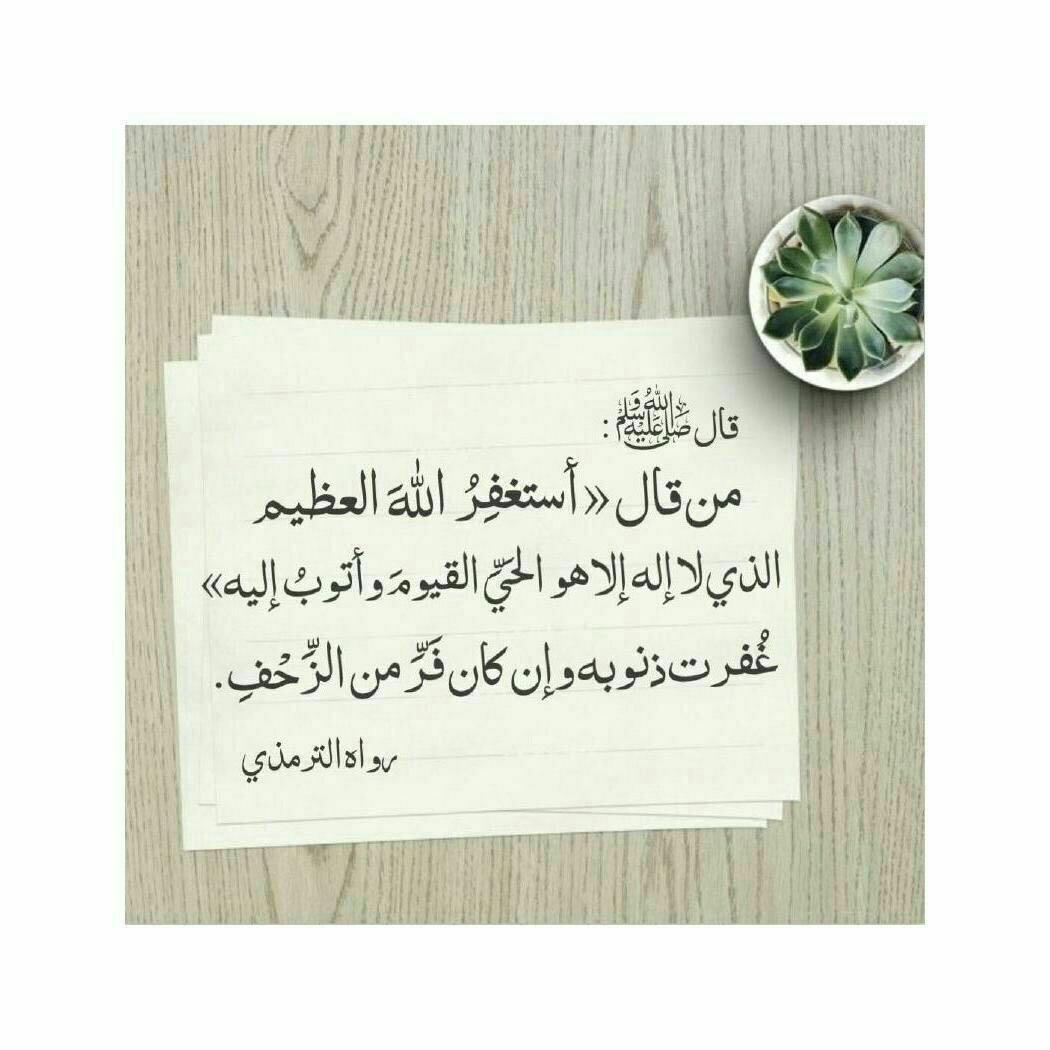 قال ﷺ:
من قال «أستغفِرُ اللهَ العظيم
الذي لا إله إلا هو الحَيَّ القيومَ وأتوبُ إليه»
غُفرت ذنوبه وإن كان فَرَّ من الزَّحْفِ.
رواه الترمذي